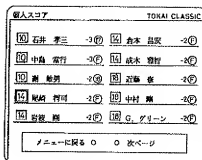 個人スコア TOKAI CLASSIC
10 石井 孝三 -3Ⓕ 14 倉本 昌弘 -2Ⓕ
10 中島 常行 -3Ⓕ 14 成木 -2Ⓕ
10 謝 敏男 -2 18 近藤 -2Ⓕ
14 尾崎 将司 -2Ⓕ 18 中村 -2Ⓕ
14 岩波 -2Ⓕ 18 G. グリーン -2Ⓕ
メニューに戻る 0 0 次ページ